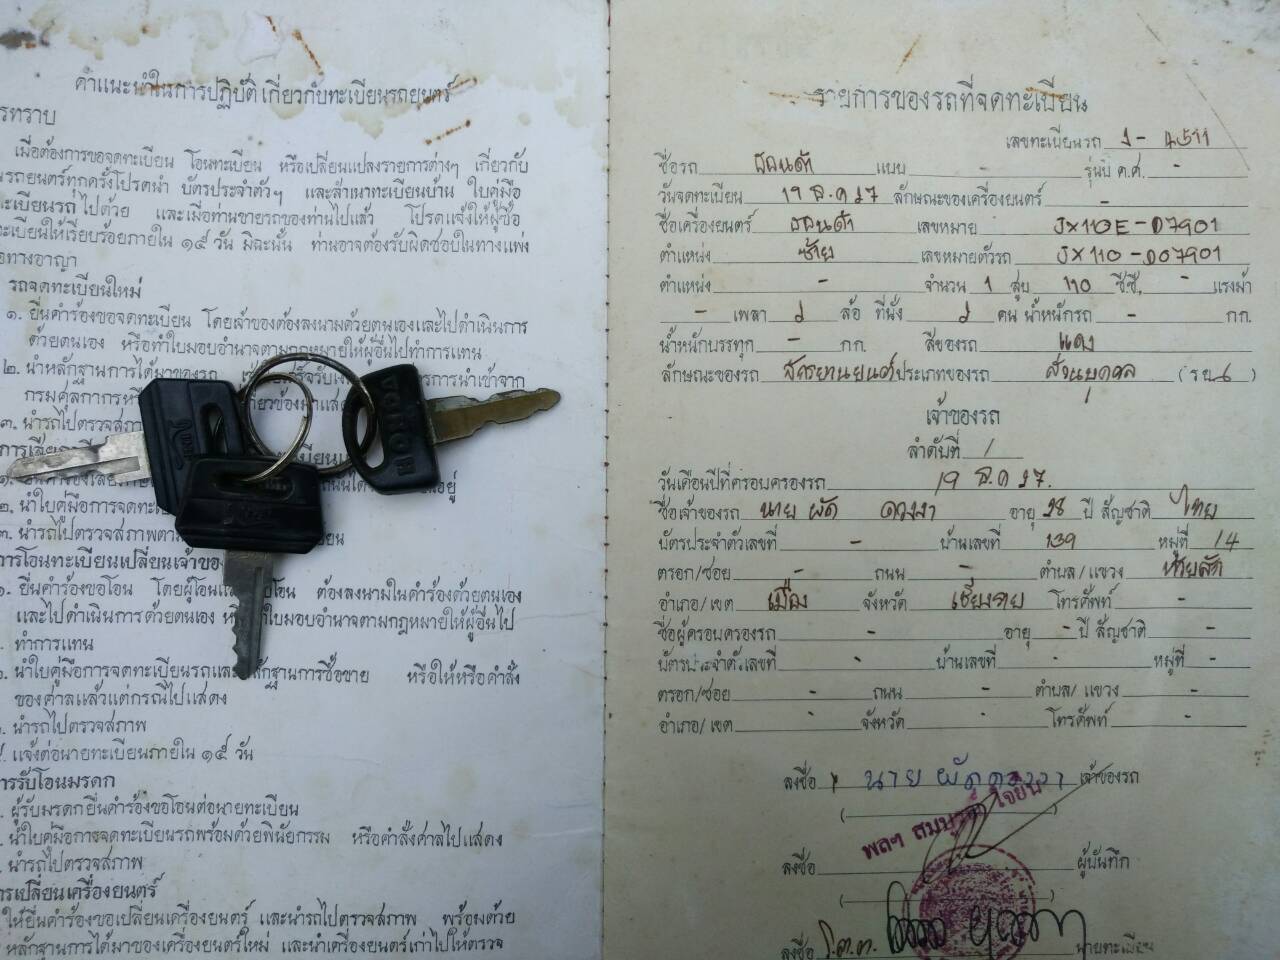 คำแนะนำในการปฏิบัติเกี่ยวกับทะเบียนรถยนตร์
รทราบ
เมื่อต้องการขอจดทะเบียน โอนทะเบียน หรือเปลี่ยนแปลงรายการต่างๆ เกี่ยวกับ
นรถยนตร์ทุกครั้งโปรดนำ บัตรประจำตัวฯ และสำเนาทะเบียนบ้าน ใบคู่มือ
ทะเบียนรถไปด้วย และเมื่อท่านขายรถของท่านไปแล้ว โปรดแจ้งให้ผู้ซื้อ
ทะเบียนให้เรียบร้อยภายใน ๑๕ วัน มิฉะนั้น ท่านอาจต้องรับผิดชอบในทางแพ่ง
อทางอาญา
รถจดทะเบียนใหม่
๑. ยื่นคำร้องขอจดทะเบียน โดยเจ้าของต้องลงนามด้วยตนเองและไปดำเนินการ
ด้วยตนเอง หรือทำใบมอบอำนาจตามกฎหมายให้ผู้อื่นไปทำการแทน
๒. นำหลักฐานการได้มาของรถ การนำเข้าจาก
กรมศุลกากรหรื
๓. นำรถไปตรวจสภาพ
HONDA
๒. นำใบคู่มือการจดทะเบีย
๓. นำรถไปตรวจสภาพตาม
การโอนทะเบียนเปลี่ยนเจ้าของ
๑. ยื่นคำร้องขอโอน โดยผู้โอนและ ต้องลงนามในคำร้องด้วยตนเอง
และไปดำเนินการด้วยตนเอง ใบมอบอำนาจตามกฎหมายให้ผู้อื่นไป
ทำการแทน
นำใบคู่มือการจดทะเบียนรถและหลักฐานการซื้อขาย หรือให้หรือคำสั่ง
ของศาลแล้วแต่กรณีไปแสดง
นำรถไปตรวจสภาพ
แจ้งต่อนายทะเบียนภายใน ๑๕ วัน
ารรับโอนมรดก
ผู้รับมรดกยื่นคำร้องขอโอนต่อนายทะเบียน
นำใบคู่มือการจดทะเบียนรถพร้อมด้วยพินัยกรรม หรือคำสั่งศาลไปแสดง
นำรถไปตรวจสภาพ
ารเปลี่ยนเครื่องยนตร์
ให้ยื่นคำร้องขอเปลี่ยนเครื่องยนตร์ และนำรถไปตรวจสภาพ พร้อมด้วย
หลักฐานการได้มาของเครื่องยนตร์ใหม่ และนำเครื่องยนตร์เก่าไปให้ตรวจ
รายการของรถที่จดทะเบียน
เลขทะเบียนรถ 1-4511
ชื่อรถ ฮอนด้า แบบ - รุ่นปี ค.ศ. -
วันจดทะเบียน 19 ธ.ค 27 ลักษณะของเครื่องยนตร์ -
ชื่อเครื่องยนตร์ ฮอนด้า เลขหมาย JX110E-D7901
ตำแหน่ง ซ้าย เลขหมายตัวรถ JX110-D07901
ตำแหน่ง - จำนวน 1 สูบ 110 ซี.ซี. - แรงม้า
- เพลา 2 ล้อ ที่นั่ง 2 คน น้ำหนักรถ - กก.
น้ำหนักบรรทุก - กก. สีของรถ แดง
ลักษณะของรถ จักรยานยนต์ ประเภทของรถ ส่วนบุคคล (รย 6)
เจ้าของรถ
ลำดับที่ 1
วันเดือนปีที่ครอบครองรถ 19 ธ.ค 27.
ชื่อเจ้าของรถ นาย ผัด ดวงงา อายุ 28 ปี สัญชาติ ไทย
บัตรประจำตัวเลขที่ - บ้านเลขที่ 139 หมู่ที่ 14
ตรอก/ซอย - ถนน - ตำบล/แขวง ห้วยสัก
อำเภอ/เขต เมือง จังหวัด เชียงราย โทรศัพท์ -
ชื่อผู้ครอบครองรถ - อายุ - ปี สัญชาติ -
บัตรประจำตัวเลขที่ - บ้านเลขที่ - หมู่ที่ -
ตรอก/ซอย - ถนน - ตำบล/แขวง -
อำเภอ/เขต - จังหวัด - โทรศัพท์ -
ลงชื่อ นาย ผัด ดวงงา เจ้าของรถ
ลงชื่อ ผู้บันทึก
ลงชื่อ ร.ต.ต. นายทะเบียน